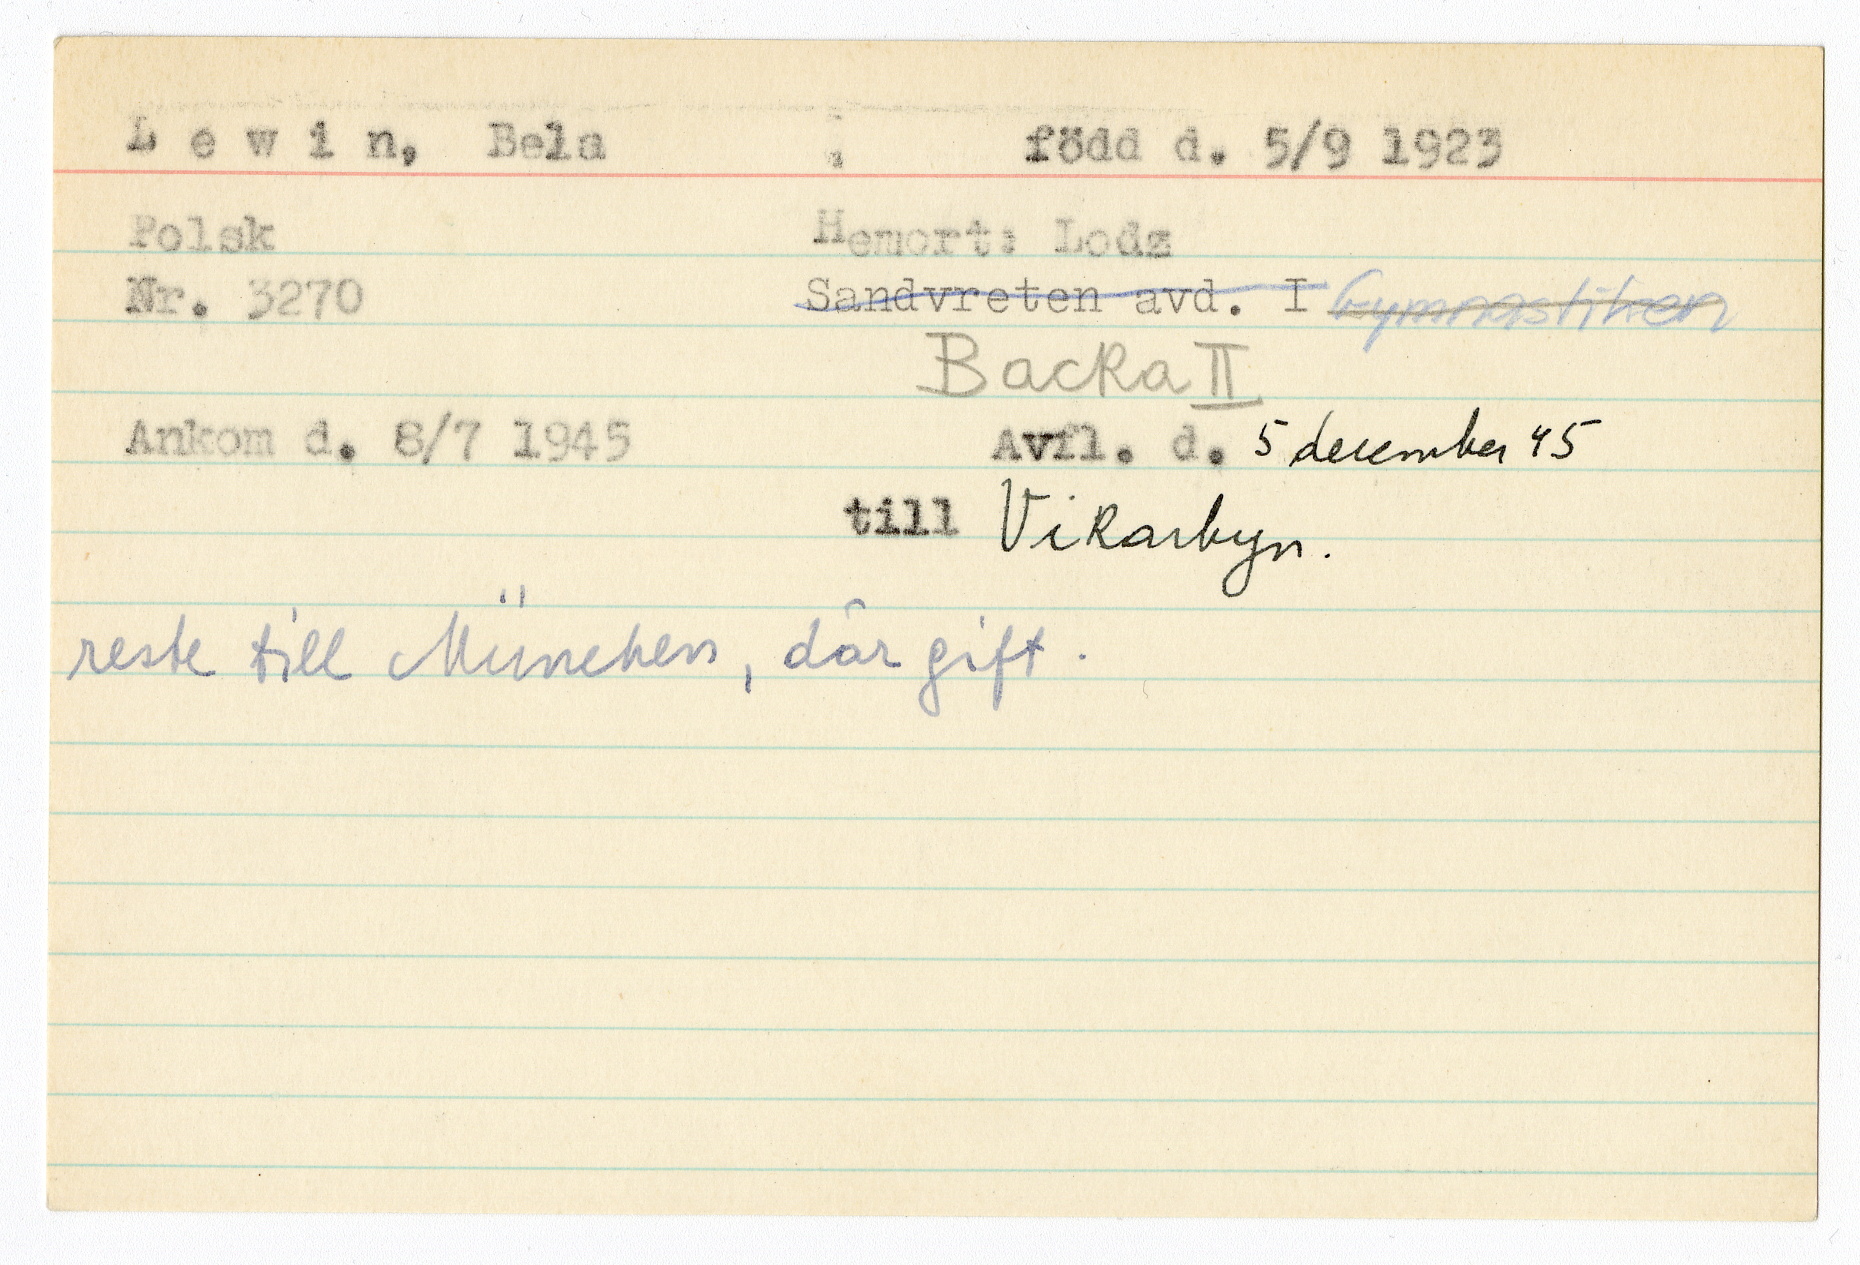 L e w i n, Bela : född d. 5/9 1923
Polsk Hemort: Lodz
Nr. 3270 Sandvreten avd. I Gymnastiken
Backa II
Ankom d. 8/7 1945 Avfl. d. 5 december 45
till Vikarbyn.
reste till München, där gift.